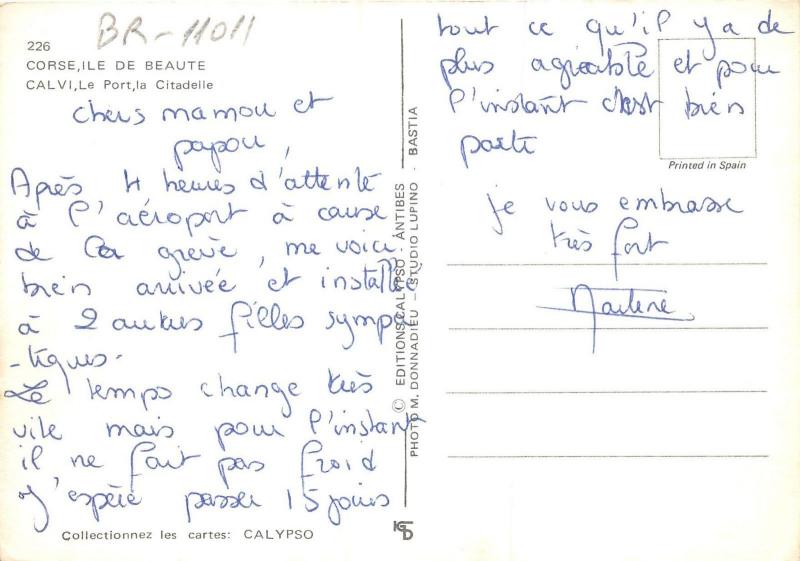 BR-11011
226
CORSE,ILE DE BEAUTE
CALVI,Le Port,la Citadelle
chers mamou et
papou,
Après 4 heures d'attente
à l'aéroport à cause
de la grève, me voici
bien arrivée et installée
à 2 autres filles sympa
-tiques.
Le temps change très
vite mais pour l'instant
il ne fait pas froid
J'espère passer 15 jours
Collectionnez les cartes: CALYPSO
© EDITIONS CALYPSO - ANTIBES
PHOTO M. DONNADIEU - STUDIO LUPINO - BASTIA
KGD
tout ce qu'il y a de
plus agréable et pour
l'instant c'est bien
parti
Printed in Spain
je vous embrasse
très fort